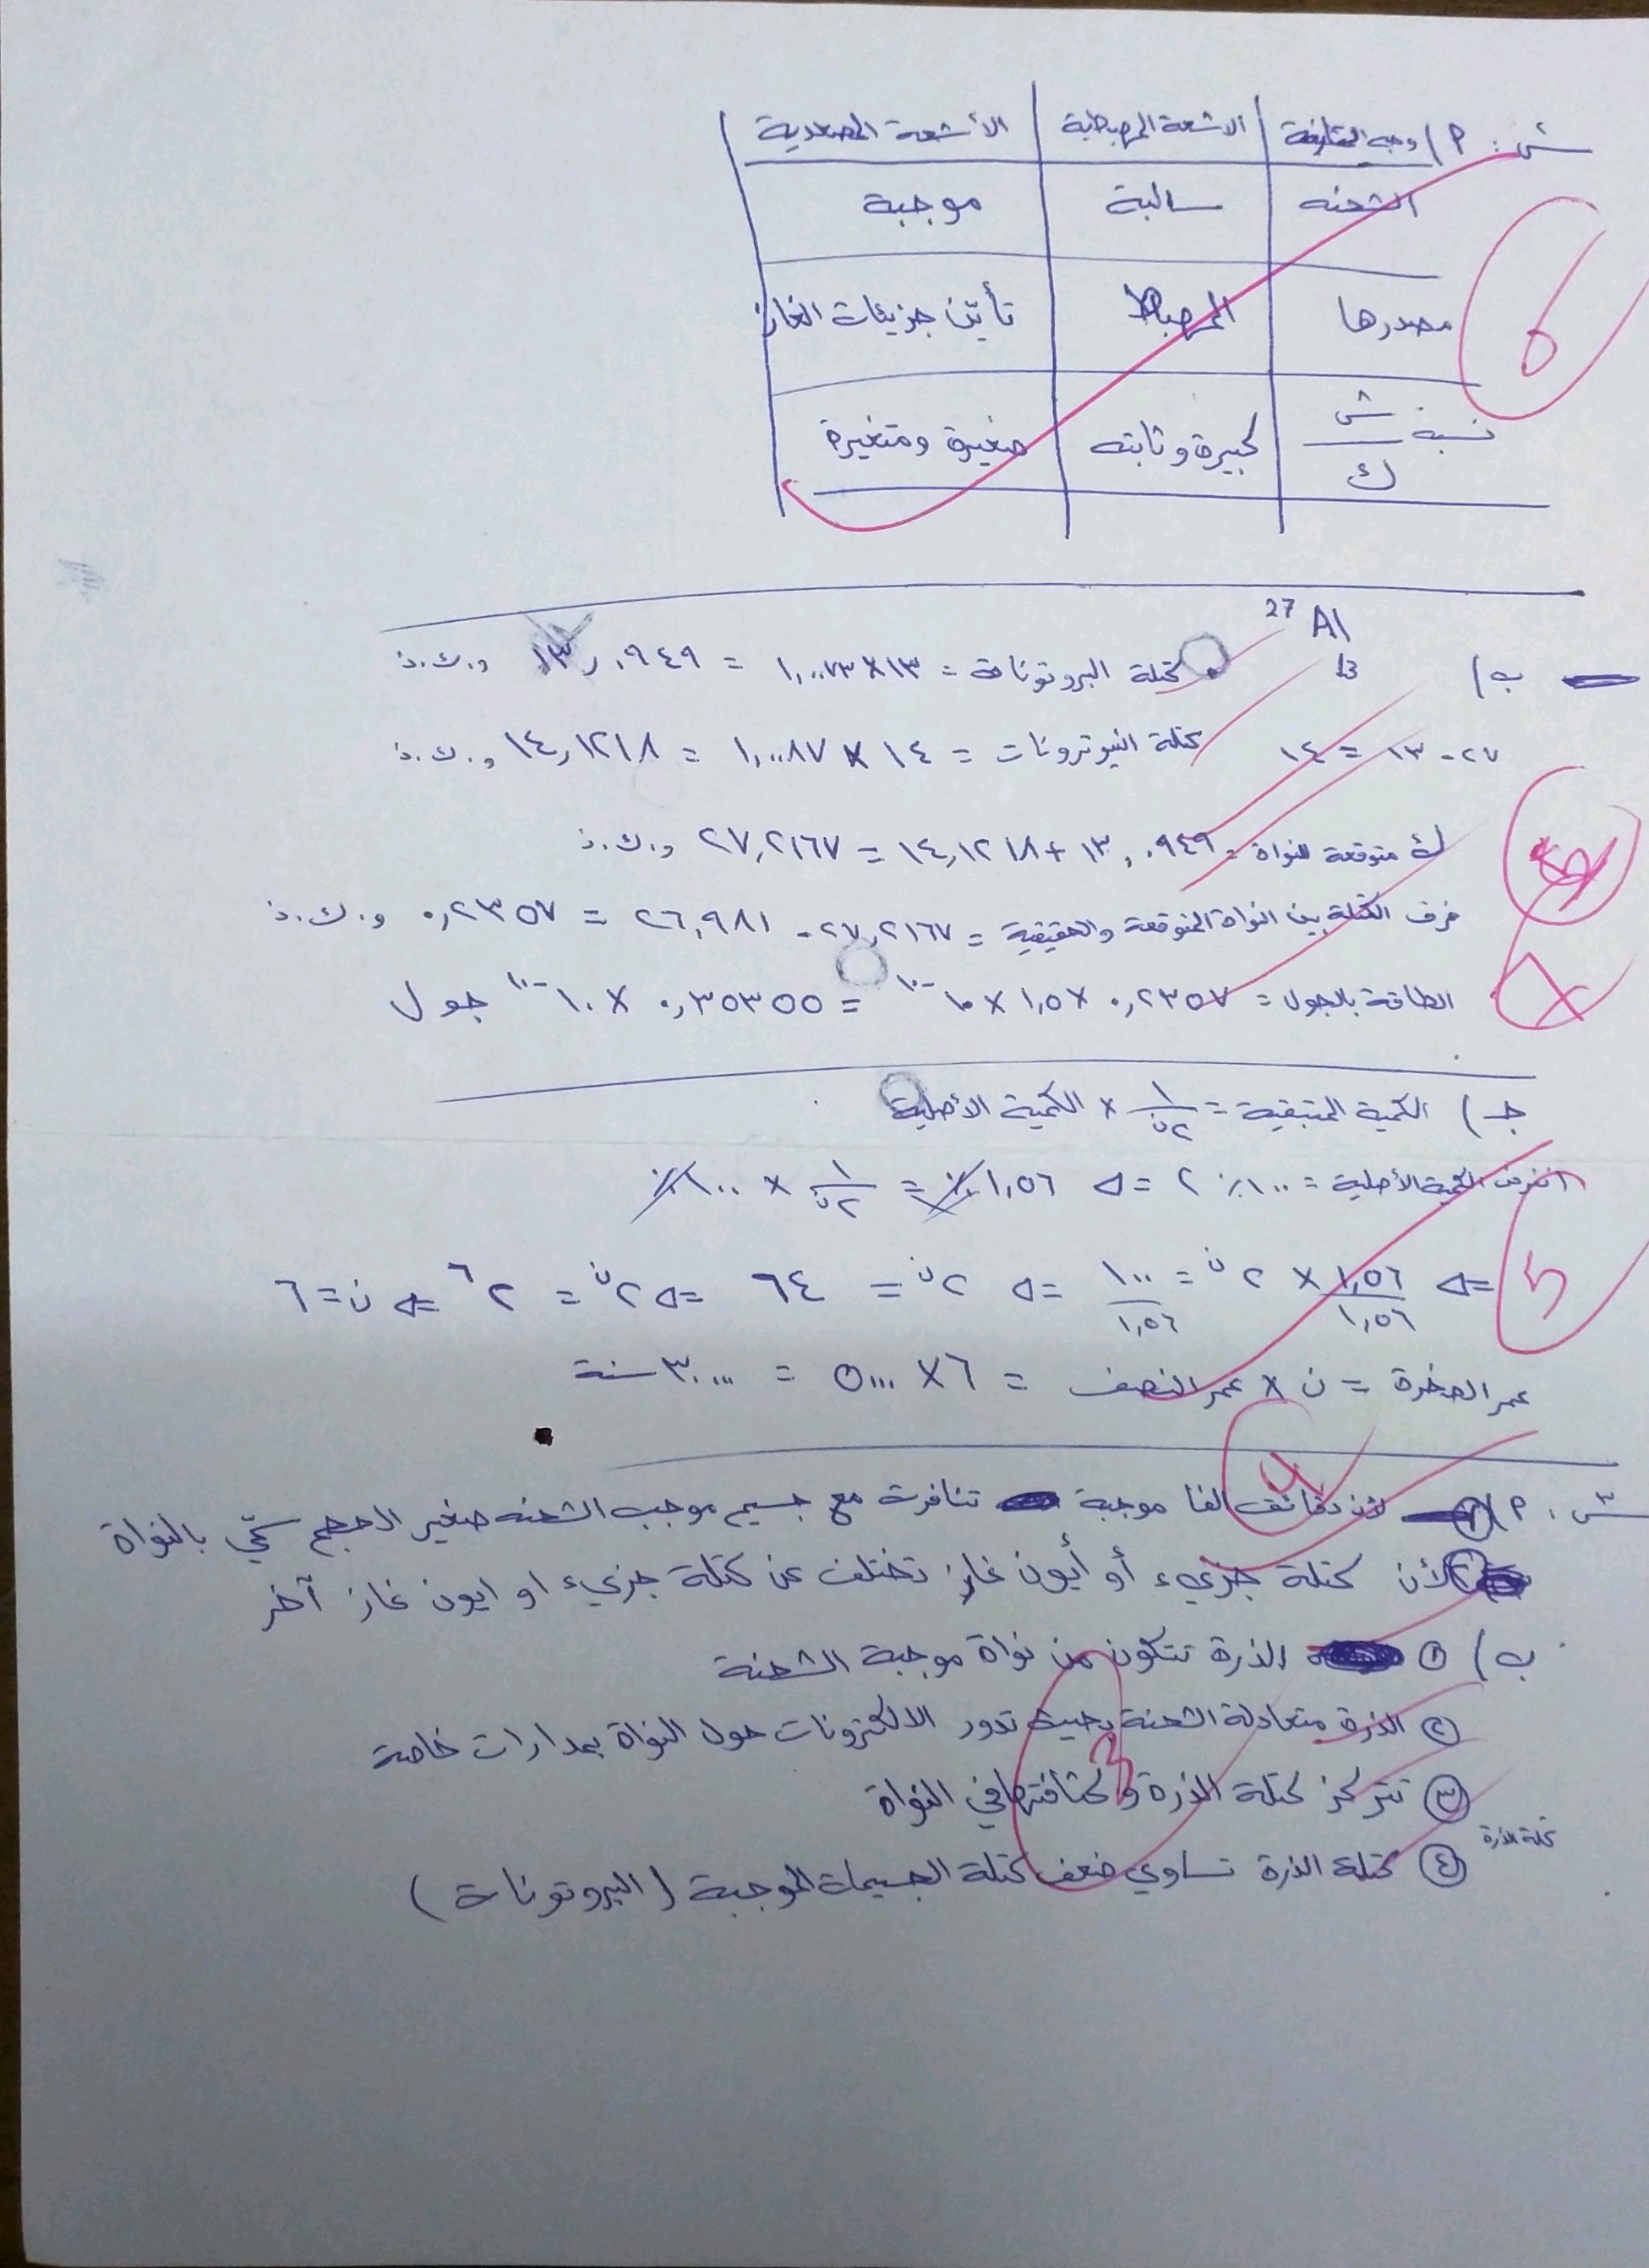 س١: أ) وجه المقارنة | الاشعة المهبطية | الأشعة المصعدية
الشحنه | سالبة | موجبة
مصدرها | المهباط | تأيّن جزيئات الغاز
نسبة ش/ك | كبيرة وثابته | صغيرة ومتغيرة
6
ب) 27 Al 13
كتلة البروتونات = ١٣×١,٠٠٧٣ = ١٣,٠٩٤٩ و.ك.ذ
٢٧-١٣ = ١٤
كتلة النيوترونات = ١٤ × ١,٠٠٨٧ = ١٤,١٢١٨ و.ك.ذ
ك متوقعة للنواة = ١٣,٠٩٤٩ + ١٤,١٢١٨ = ٢٧,٢١٦٧ و.ك.ذ
فرق الكتلة بين النواة المتوقعة والحقيقية = ٢٧,٢١٦٧ - ٢٦,٩٨١ = ٠,٢٣٥٧ و.ك.ذ
الطاقة بالجول = ٠,٢٣٥٧ × ١,٥ × ١٠^-١٠ = ٠,٣٥٣٥٥ × ١٠^-١٠ جول
جـ) الكمية المتبقية = ١/٢ن × الكمية الأصلية
نفرض الكمية الأصلية = ١٠٠٪ ؟ => ١,٥٦٪ = ١/٢ن × ١٠٠٪
=> ١,٥٦/١,٥٦ × ٢ن = ١٠٠/١,٥٦ => ٢ن = ٦٤ => ٢ن = ٢^٦ => ن = ٦
5
عمر الصخرة = ن × عمر النصف = ٦ × ٥٠٠٠ = ٣٠٠٠٠ سنة
س٣: أ) ١ لأن دقائق الفا موجبة تنافرت مع جسيم موجب الشحنه صغير الحجم سمّي بالنواة
٢ لأن كتلة جزيء أو أيون غاز تختلف عن كتلة جزيء او ايون غاز آخر
ب) ١ الذرة تتكون من نواة موجبة الشحنة
٢ الذرة متعادلة الشحنة بحيث تدور الالكترونات حول النواة بمدارات خاصة
3
٣ تتركز كتلة الذرة وكثافتها في النواة
كتلة الذرة
٤ كتلة الذرة تساوي ضعف كتلة الجسيمات الموجبة (البروتونات)